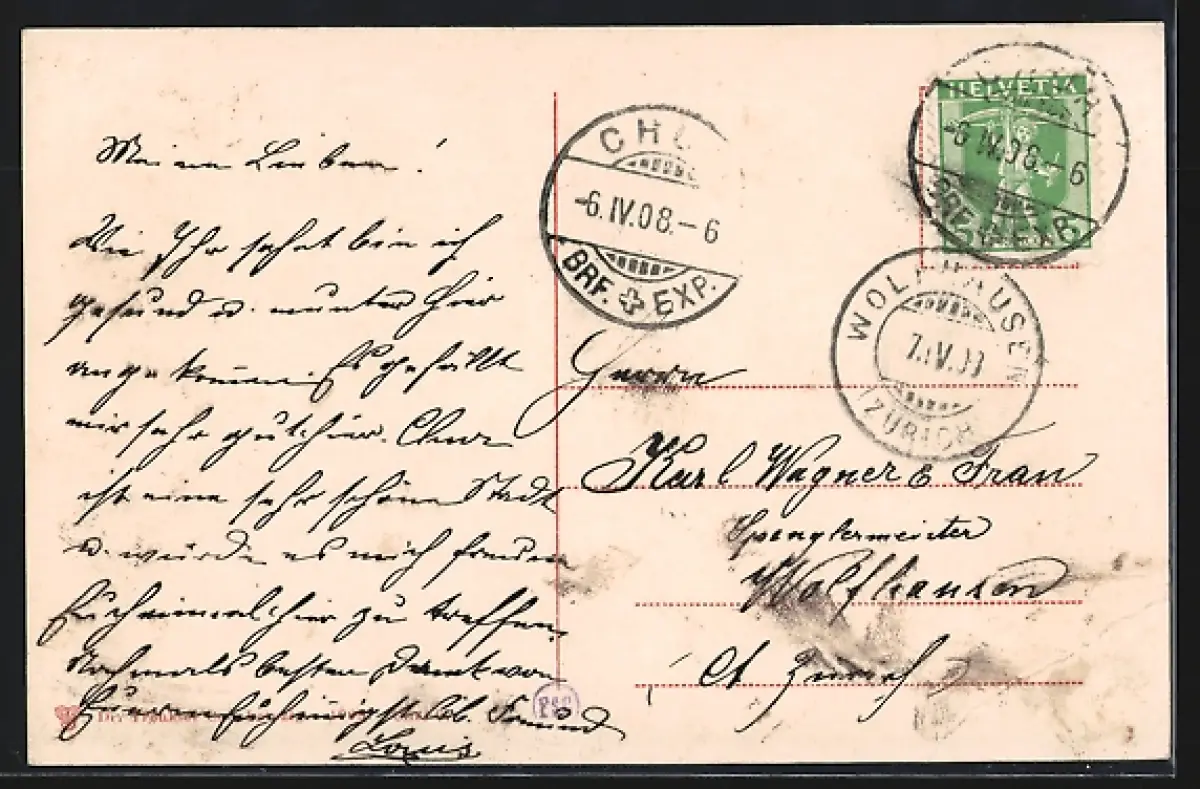 Meine Lieben!
Wie Ihr sehet bin ich
gesund u. munter hier
angekommen. Es gefällt
mir sehr gut hier. Chur
ist eine sehr schöne Stadt
u. würde es mich freuen
Euch einmal hier zu treffen.
Nochmals besten Dank von
Eurem Euch innigst lb. Freund
Louis
CHU
-6.IV.08.-6
BRF. EXP.
HELVETIA
-6.IV.08.-6
BRF. EXP.
WOLFHAUSEN
7.IV.08
(ZÜRICH)
Herrn
Karl Wagner & Frau
Spenglermeister
Wolfhausen
Ct. Zürich